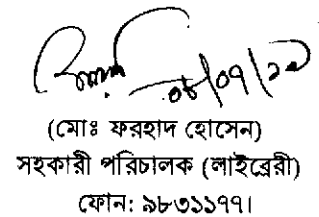 ০৮/০৭/১০
(মোঃ ফরহাদ হোসেন)
সহকারী পরিচালক (লাইব্রেরী)
ফোন: ৯৮৩১১৭৭।